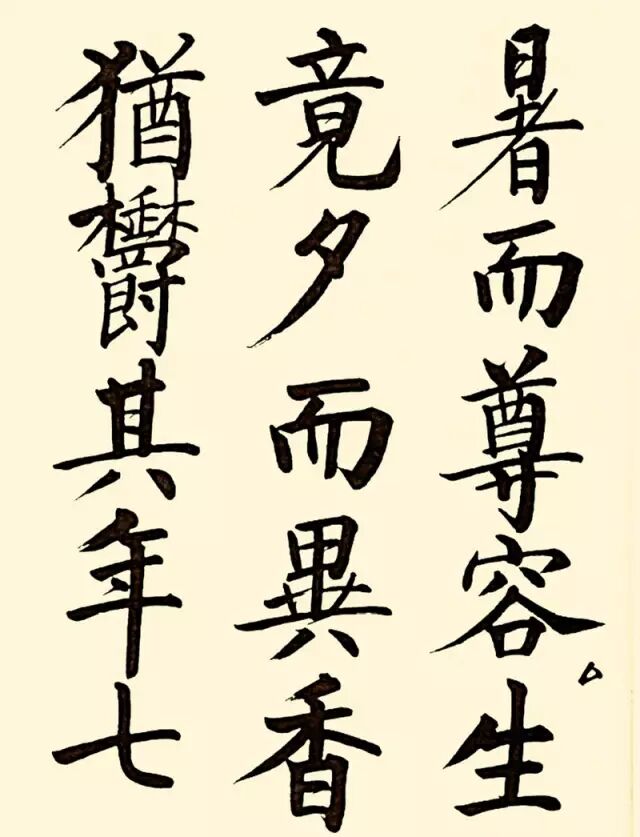 暑而尊容生
竟夕而異香
猶欝其年七